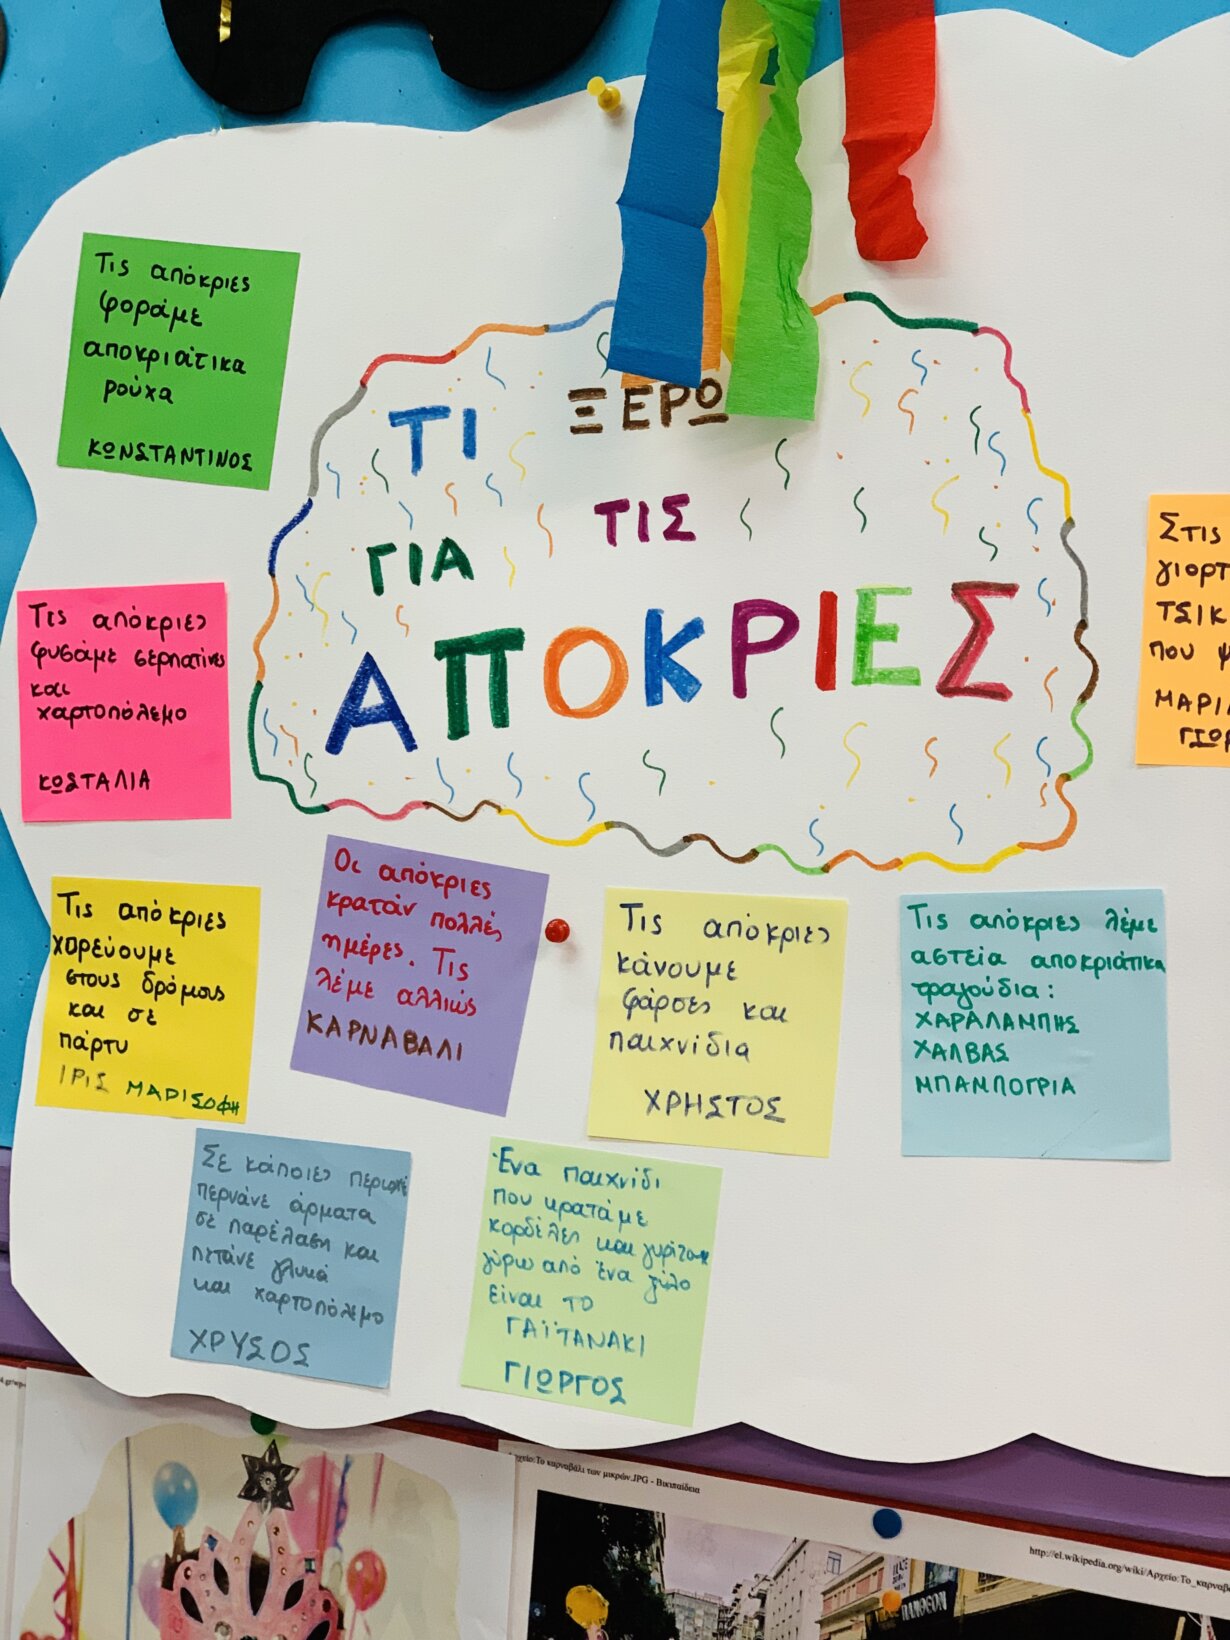 ΤΙ ΞΕΡΩ
ΓΙΑ ΤΙΣ
ΑΠΟΚΡΙΕΣ
Τις απόκριες
φοράμε
αποκριάτικα
ρούχα
ΚΩΝΣΤΑΝΤΙΝΟΣ
Τις απόκριες
φυσάμε σερπατίνες
και
χαρτοπόλεμο
ΚΩΣΤΑΛΙΑ
Στις
γιορτ
ΤΣΙΚ
που ψ
ΜΑΡΙΛ
ΓΙΩΡ
Τις απόκριες
χορεύουμε
στους δρόμους
και σε
πάρτυ
ΙΡΙΣ ΜΑΡΙΣΟΦΗ
Οι απόκριες
κρατάν πολλές
ημέρες. Τις
λέμε αλλιώς
ΚΑΡΝΑΒΑΛΙ
Τις απόκριες
κάνουμε
φάρσες και
παιχνίδια
ΧΡΗΣΤΟΣ
Τις απόκριες λέμε
αστεία αποκριάτικα
τραγούδια:
ΧΑΡΑΛΑΜΠΗΣ
ΧΑΛΒΑΣ
ΜΠΑΜΠΟΓΡΙΑ
Σε κάποιες περιοχέ
περνάνε άρματα
σε παρέλαση και
πετάνε γλυκά
και χαρτοπόλεμο
ΧΡΥΣΟΣ
Ένα παιχνίδι
που κρατάμε
κορδέλες και γυρίζουμε
γύρω από ένα ξύλο
είναι το
ΓΑΪΤΑΝΑΚΙ
ΓΙΩΡΓΟΣ
χείο:Το καρναβάλι των μικρών.JPG - Βικιπαίδεια
http://el.wikipedia.org/wiki/Αρχείο:Το_καρναβ